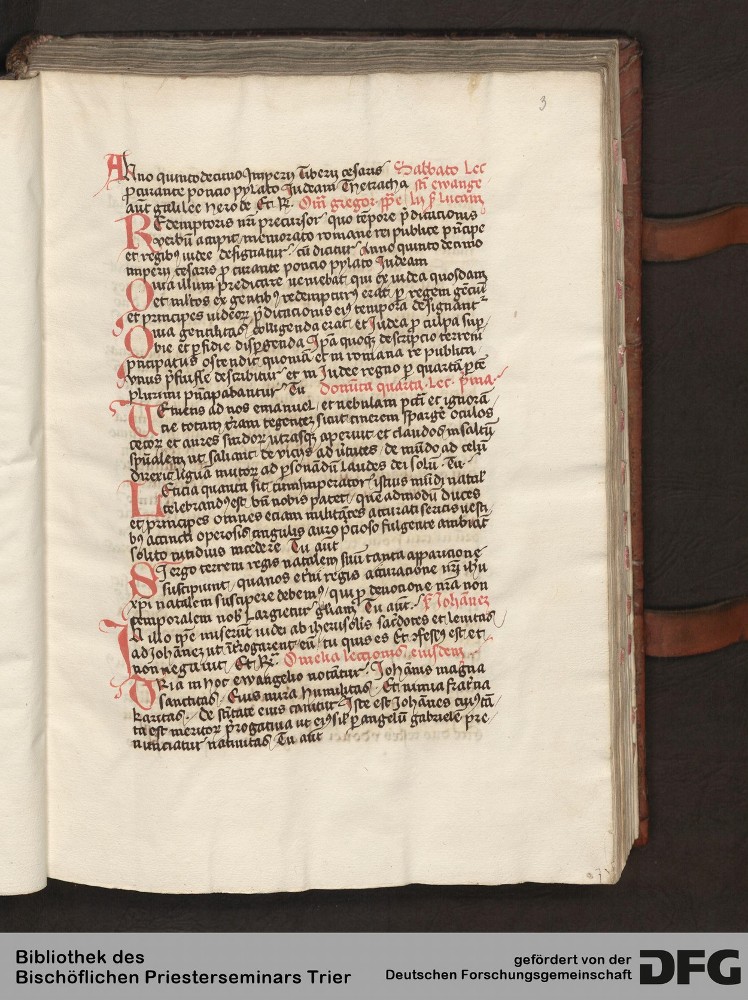 3
Anno quintodecimo Imperii Tiberii cesaris Sabbato Lec
ꝓcurante poncio pylato Iudeam Thetracha scᷤ ewange
aut̄ galilee herode Et R. Om̄ gregor pp̄e lii ẜ lucam
Redemptoris nr̄i precursor quo tēpore p̄dicacionis
verbū accipit memorato romane rei publice p̄ncipe
et regibꝰ iudee designatur cū dicitur Anno quinto decimo
imperii cesaris ꝓcurante poncio pylato Iudeam
Quia illum predicare veniebat qui ex iudea quosdam
et mltos ex gentibꝰ redempturꝰ erat ꝑ regem gēciū
et principes iudeoꝝ p̄dicacionis eiꝰ tempora designant᷑
Quia gentilitas colligenda erat et Iudea ꝓ culpa sup
bie et ꝑfidie disꝑgenda Ip̄a quoqꝫ descripcio terreni
p̄ncipatus ostendit quoniā et in romana re publica
vnus p̄fuisse describitur et in Iudee regno ꝑ quartā ꝑtē
plurimi p̄ncipabantur Tu Domīica quarta Lec. p̄ma
Veniens ad nos emanuel et nebulam pctī et ignorā
cie totam tr̄am tegentē sicut cinerem spargēs oculos
cecoꝝ et aures surdoꝝ vtrasqꝫ aperuit et claudos in saltū
sp̄ualem vt saliant de viciis ad v̄tutes de mūdo ad celū
direxit liguā mutoꝝ ad ꝑsonādū laudes dei solū Tu
Leticia quanta sit cum imperatoris istius mūdi natal
celebrandꝰ est bn̄ nobis patet quē admodū duces
et principes omnes eciam militātes accurati sericis vesti
bꝰ accincti operosis cingulis auro p̄cioso fulgente ambiāt
solito nitidius incedere Tu aut
Si ergo terreni regis natalem sui tanta apparicione
suscipiunt quanos et̄ni regis accuracione nr̄i ih̄u
xp̄i natalem suscipere debemꝰ qui ꝓ deuocione nr̄a non
temporalem nob̄ Largietur gl̄iam Tu aut. ẜ Johānez
In illo tp̄e miserūt iudei ab iherosolis sac̄dotes et leuitas
ad Johānez ut īt̄rogarent eū tu quis es Et ꝯfessꝰ est et
non negauit Et R. Omelia leccionis eiusdem
Quia in hoc ewangelio notātur Johānis magna
sanctitas Eius mira humilitas Et nimia frat̄na
karitas De s̄titate eius canitur Iste est Johānes cuiꝰ tā
ta est meritoꝝ p̄rogatiua ut eiꝰ sil ꝑ angelū gabriele pre
nunciatur natiuitas Tu aut
Bibliothek des
Bischöflichen Priesterseminars Trier
gefördert von der
Deutschen Forschungsgemeinschaft
DFG